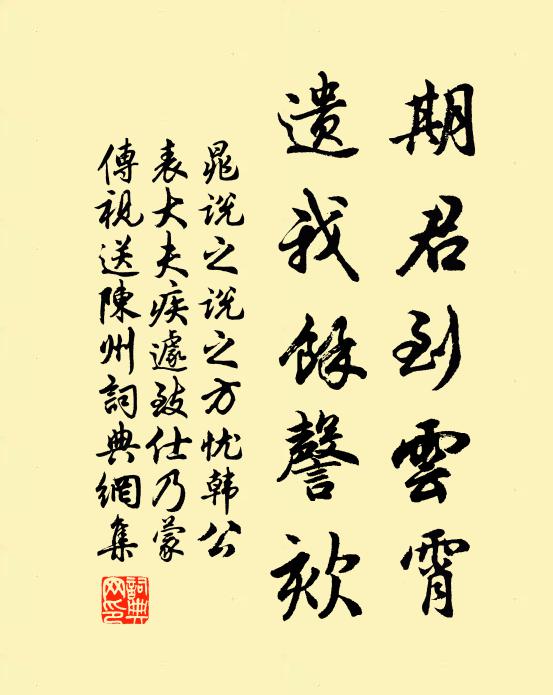 期君到雲霄
遺我餘謦欬
晁説之説之方忧韩公
表大夫疾遽致仕乃蒙
傳視送陳州詞典網集
詞典網印